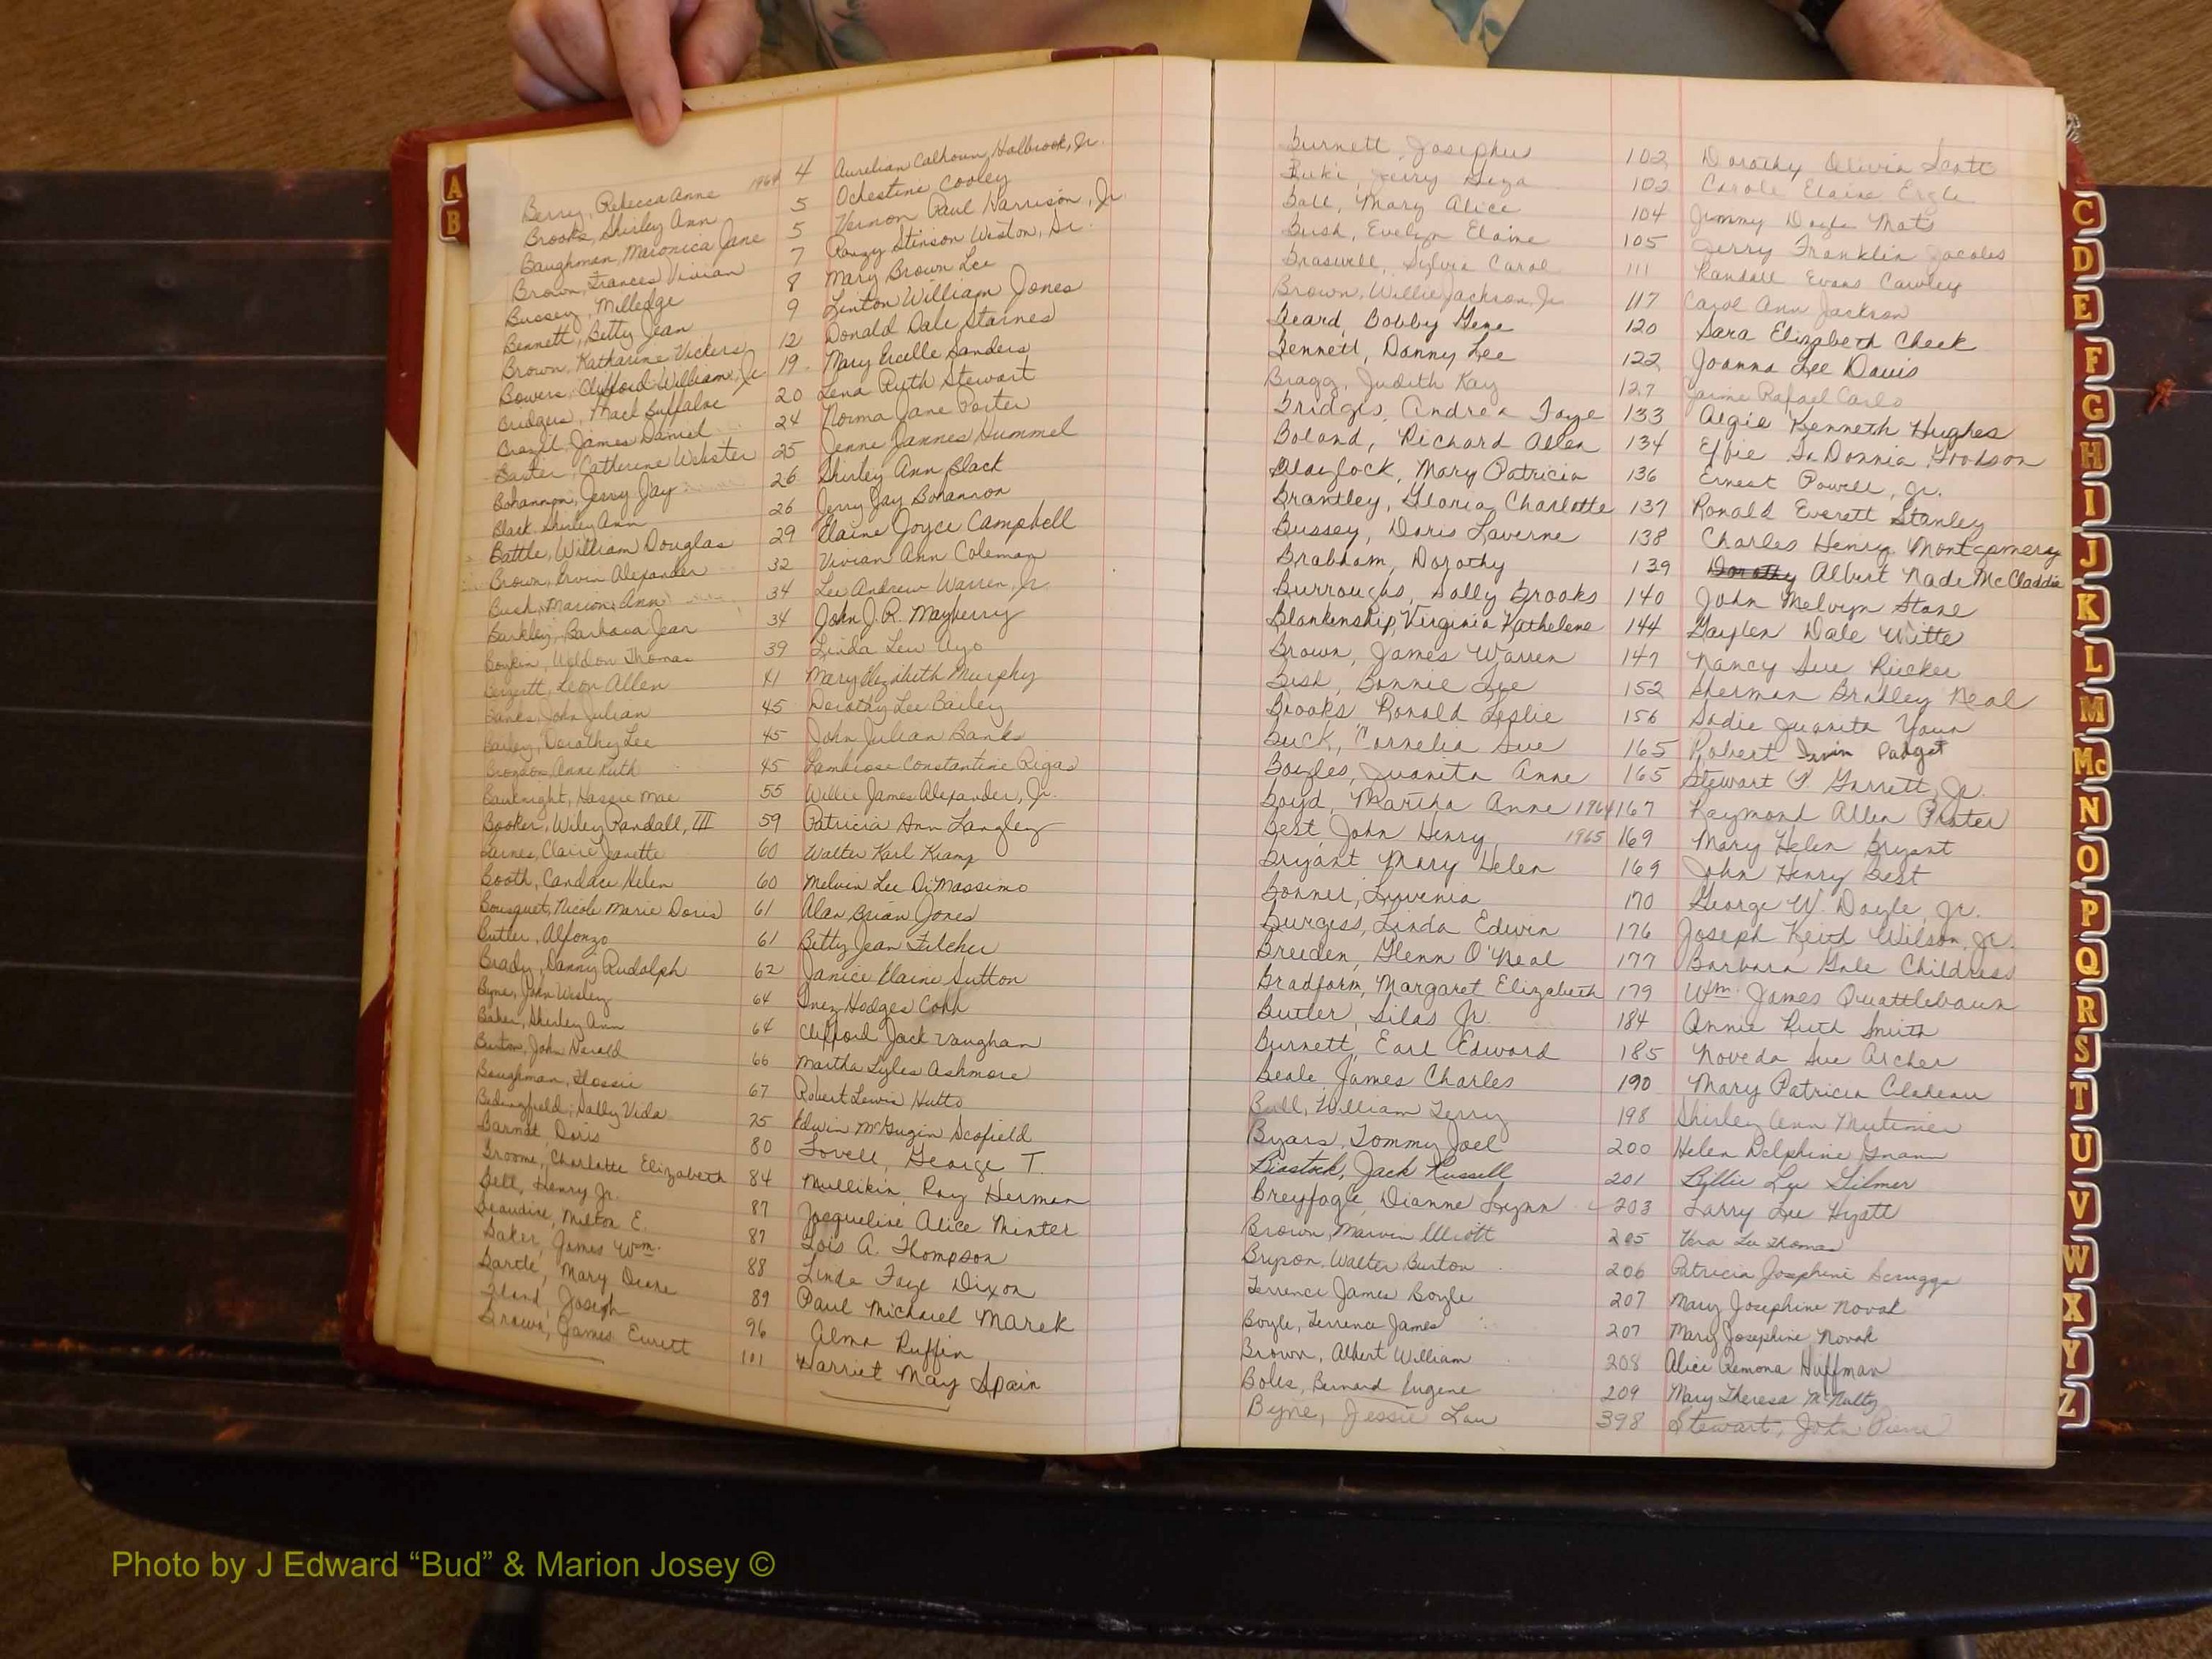 A
B
Berry, Rebecca Anne 1964 4 Aurelian Calhoun Holbrook, Jr.
Brooks, Shirley Ann 5 Ochestine Cooley
Baughman, Maronica Jane 5 Vernon Paul Harrison, Jr.
Brown, Frances Vivian 7 Rouzy Stinson Weston, Sr.
Bussey, Milledge 8 Mary Brown Lee
Bennett, Betty Jean 9 Linton William Jones
Brown, Katharine Vickers 12 Donald Dale Starnes
Bowers, Clifford William, Jr. 19 Mary Ercelle Sanders
Bridges, Mack Buffaloe 20 Lena Ruth Stewart
Brazil, James Daniel 24 Norma Jane Porter
Baxter, Catherine Webster 25 Jenne Jannes Hummel
Bohannon, Jerry Jay 26 Shirley Ann Black
Black, Shirley Ann 26 Jerry Jay Bohannon
Battle, William Douglas 29 Elaine Joyce Campbell
Brown, Ervin Alexander 32 Vivian Ann Coleman
Bush, Marion Ann 34 Lee Andrew Warren, Jr.
Barkley, Barbara Jean 34 John J. R. Mayberry
Boykin, Weldon Thomas 39 Linda Lew Ayo
Leon Allen 41 Mary Elizabeth Murphy
Banks, John Julian 45 Dorothy Lee Bailey
Bailey, Dorothy Lee 45 John Julian Banks
Brogdon, Anne Ruth 45 Constantine Rigas
Bouknight, Hassie Mae 55 Willie James Alexander, Jr.
Booker, Wiley Randall, III 59 Patricia Ann Langley
Barnes, Claire Janette 60 Walter Karl Kramp
Booth, Candace Helen 60 Melvin Lee DiMassimo
Bousquet, Nicole Marie Doris 61 Alan Brian Jones
Butler, Alfonzo 61 Betty Jean Filcher
Brady, Danny Rudolph 62 Janice Elaine Sutton
Byne, John Wesley 64 Inez Hodges Cobb
Baker, Shirley Ann 64 Clifford Jack Vaughan
Burton, John Harold 66 Martha Lyles Ashmore
Baughman, Flossie 67 Robert Lewis Hutto
Bedingfield, Sally Vida 75 Edwin McGugin Scofield
Barnet, Doris 80 Lovell, George T.
Broome, Charlotte Elizabeth 84 Mullikin, Ray Herman
Bell, Henry Jr. 87 Jacqueline Alice Minter
Beaudire, Milton E. 87 Lois A. Thompson
Baker, James Wm. 88 Linda Faye Dixon
Bartle, Mary Diane 89 Paul Michael Marek
Bland, Joseph 96 Alma Ruffin
Brown, James Everett 101 Harriet May Spain
Burnett, Josephus 102 Dorothy Olivia Scott
Jerry 102 Carole Elaine Ergle
Ball, Mary Alice 104 Jimmy Doyle Mots
Bush, Evelyn Elaine 105 Jerry Franklin Jacobs
Braswell, Sylvia Carol 111 Randall Evans Cawley
Brown, Willie Jackson, Jr. 117 Carol Ann Jackson
Beard, Bobby Gene 120 Sara Elizabeth Cheek
Bennett, Danny Lee 122 Joanna Lee Davis
Bragg, Judith Kay 127 Jaime Rafael Carlo
Bridges, Andrea Faye 133 Algie Kenneth Hughes
Boland, Richard Allen 134 Effie LaDonnia Goodson
Blaylock, Mary Patricia 136 Ernest Powell, Jr.
Brantley, Gloria Charlotte 137 Ronald Everett Stanley
Bussey, Doris Laverne 138 Charles Henry Montgomery
Brabham, Dorothy 139 Dorothy Albert Nade McCladdie
Burroughs, Sally Brooks 140 John Melvyn Stone
Blankenship, Virginia Kathelene 144 Gaylen Dale Witte
Brown, James Warren 147 Nancy Sue Rucker
Bish, Bonnie Lee 152 Sherman Bradley Neal
Brooks, Ronald Leslie 156 Sadie Juanita Youn
Buck, Cornelia Sue 165 Robert Irvin Padget
Boyles, Juanita Anne 165 Stewart P. Garrett, Jr.
Boyd, Martha Anne 1964 167 Raymond Allen Prater
Best, John Henry 1965 169 Mary Helen Bryant
Bryant, Mary Helen 169 John Henry Best
Bonner, Luvenia 170 George W. Doyle, Jr.
Burgess, Linda Edwin 176 Joseph Keith Wilson, Jr.
Breeden, Glenn O'Neal 177 Barbara Gale Childress
Bradform, Margaret Elizabeth 179 Wm. James Quattlebaum
Butler, Silas Jr. 184 Annie Ruth Smith
Burnett, Earl Edward 185 Noveda Sue Archer
Beale, James Charles 190 Mary Patricia Cladeau
Ball, William Terry 198 Shirley Ann Mutimer
Byars, Tommy Joel 200 Helen Delphine Gnann
Biastock, Jack Russell 201 Lyllie Lee Gilmer
Breyfogle, Dianne Lynn 203 Larry Lee Hyatt
Brown, Marvin Elliott 205 Vera Lee Thomas
Bryson, Walter Burton 206 Patricia Josephine Scruggs
Terrence James Boyle 207 Mary Josephine Novak
Boyle, Terrence James 207 Mary Josephine Novak
Brown, Albert William 208 Alice Remona Huffman
Boles, Bernard Eugene 209 Mary Theresa McNalty
Byne, Jessie Lou 398 Stewart, John Pierce
C
D
E
F
G
H
I
J
K
L
M
Mc
N
O
P
Q
R
S
T
U
V
W
X
Y
Z
Photo by J Edward “Bud” & Marion Josey ©